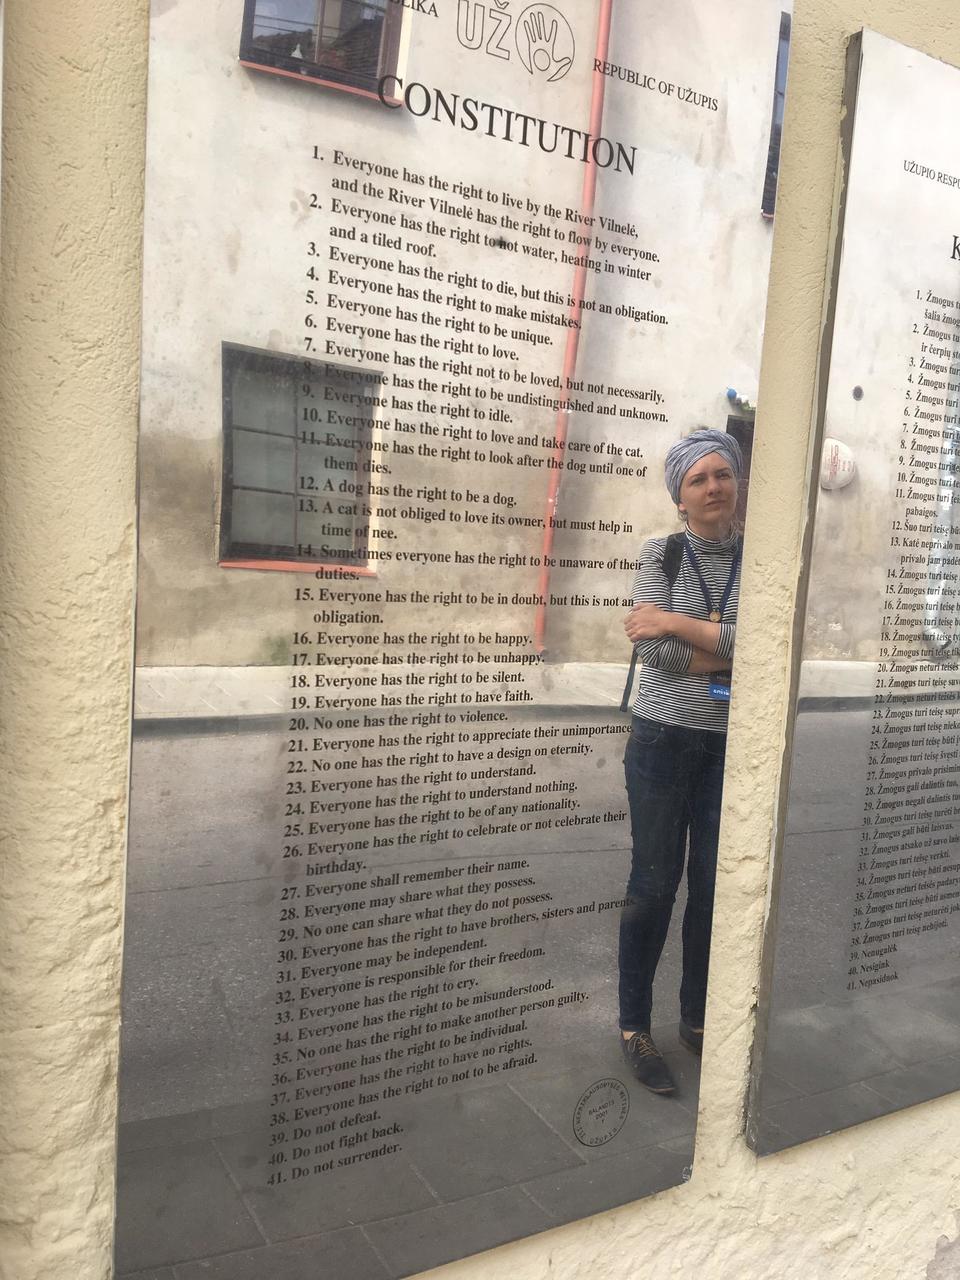 UŽ
REPUBLIC OF UŽUPIS
CONSTITUTION
1. Everyone has the right to live by the River Vilnelė,
and the River Vilnelė has the right to flow by everyone.
2. Everyone has the right to hot water, heating in winter
and a tiled roof.
3. Everyone has the right to die, but this is not an obligation.
4. Everyone has the right to make mistakes.
5. Everyone has the right to be unique.
6. Everyone has the right to love.
7. Everyone has the right not to be loved, but not necessarily.
8. Everyone has the right to be undistinguished and unknown.
9. Everyone has the right to idle.
10. Everyone has the right to love and take care of the cat.
11. Everyone has the right to look after the dog until one of
them dies.
12. A dog has the right to be a dog.
13. A cat is not obliged to love its owner, but must help in
time of nee.
14. Sometimes everyone has the right to be unaware of their
duties.
15. Everyone has the right to be in doubt, but this is not an
obligation.
16. Everyone has the right to be happy.
17. Everyone has the right to be unhappy.
18. Everyone has the right to be silent.
19. Everyone has the right to have faith.
20. No one has the right to violence.
21. Everyone has the right to appreciate their unimportance.
22. No one has the right to have a design on eternity.
23. Everyone has the right to understand.
24. Everyone has the right to understand nothing.
25. Everyone has the right to be of any nationality.
26. Everyone has the right to celebrate or not celebrate their
birthday.
27. Everyone shall remember their name.
28. Everyone may share what they possess.
29. No one can share what they do not possess.
30. Everyone has the right to have brothers, sisters and parents.
31. Everyone may be independent.
32. Everyone is responsible for their freedom.
33. Everyone has the right to cry.
34. Everyone has the right to be misunderstood.
35. No one has the right to make another person guilty.
36. Everyone has the right to be individual.
37. Everyone has the right to have no rights.
38. Everyone has the right to not to be afraid.
39. Do not defeat.
40. Do not fight back.
41. Do not surrender.
BALANDIS
2001
UŽUPIO
K
1. Žmogus
šalia
2. Žmogus
ir čerpių
3. Žmogus turi
4. Žmogus turi
5. Žmogus turi
6. Žmogus turi
7. Žmogus turi
8. Žmogus turi
9. Žmogus turi
10. Žmogus turi
11. Žmogus turi
pabaigos.
12. Šuo turi teisę
13. Katė neprivalo
privalo jam
14. Žmogus turi teisę
15. Žmogus turi teisę
16. Žmogus turi teisę
17. Žmogus turi teisę
18. Žmogus turi teisę
19. Žmogus turi teisę
20. Žmogus neturi teisės
21. Žmogus turi teisę
22. Žmogus neturi teisės
23. Žmogus turi teisę
24. Žmogus turi teisę
25. Žmogus turi teisę būti
26. Žmogus turi teisę švęsti
27. Žmogus privalo
28. Žmogus gali dalintis tuo,
29. Žmogus negali dalintis
30. Žmogus turi teisę turėti
31. Žmogus gali būti laisvas.
32. Žmogus atsako už savo
33. Žmogus turi teisę verkti.
34. Žmogus turi teisę būti
35. Žmogus neturi teisės
36. Žmogus turi teisę būti
37. Žmogus turi teisę neturėti
38. Žmogus turi teisę nebijoti.
39. Nenugalėk
40. Nesigink
41. Nepasiduok